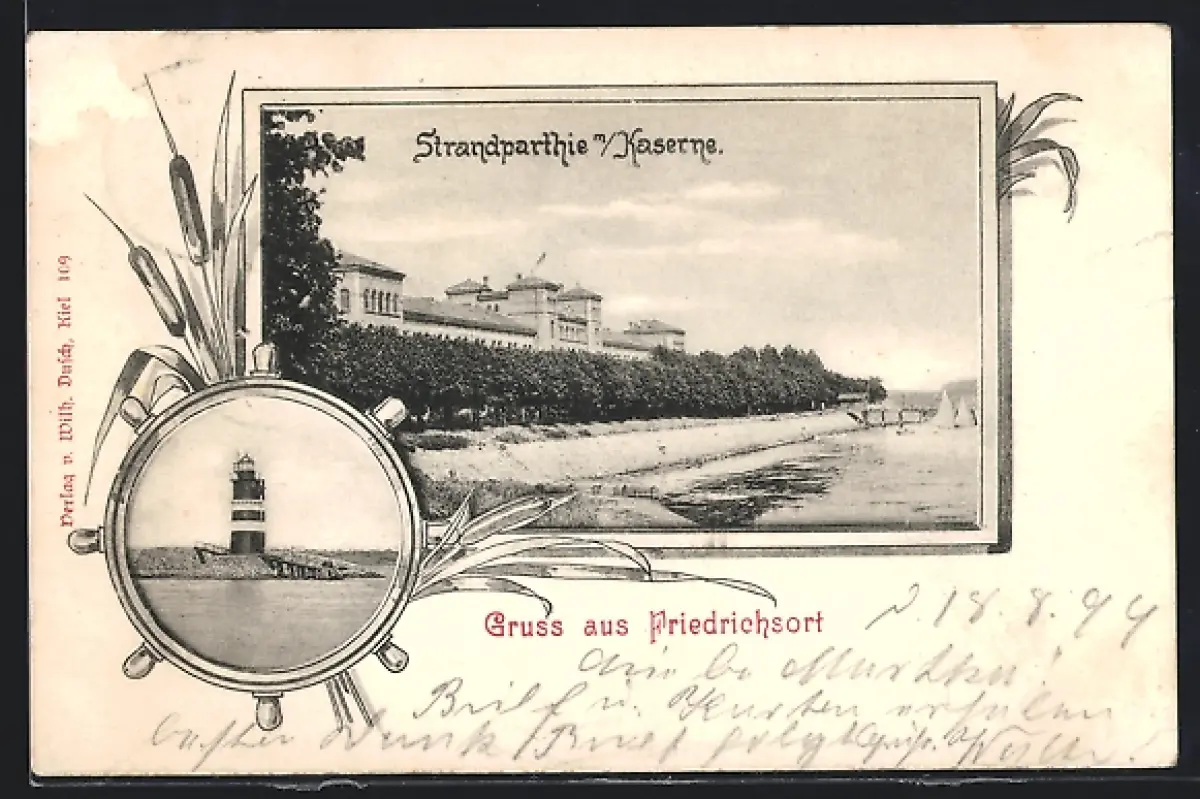 Strandparthie m/Kaserne.
Verlag v. Wilh. Dusch, Kiel 109
Gruss aus Friedrichsort
18. 8. 99
Brief u. Karten erhalten
besten Dank Brief folgt